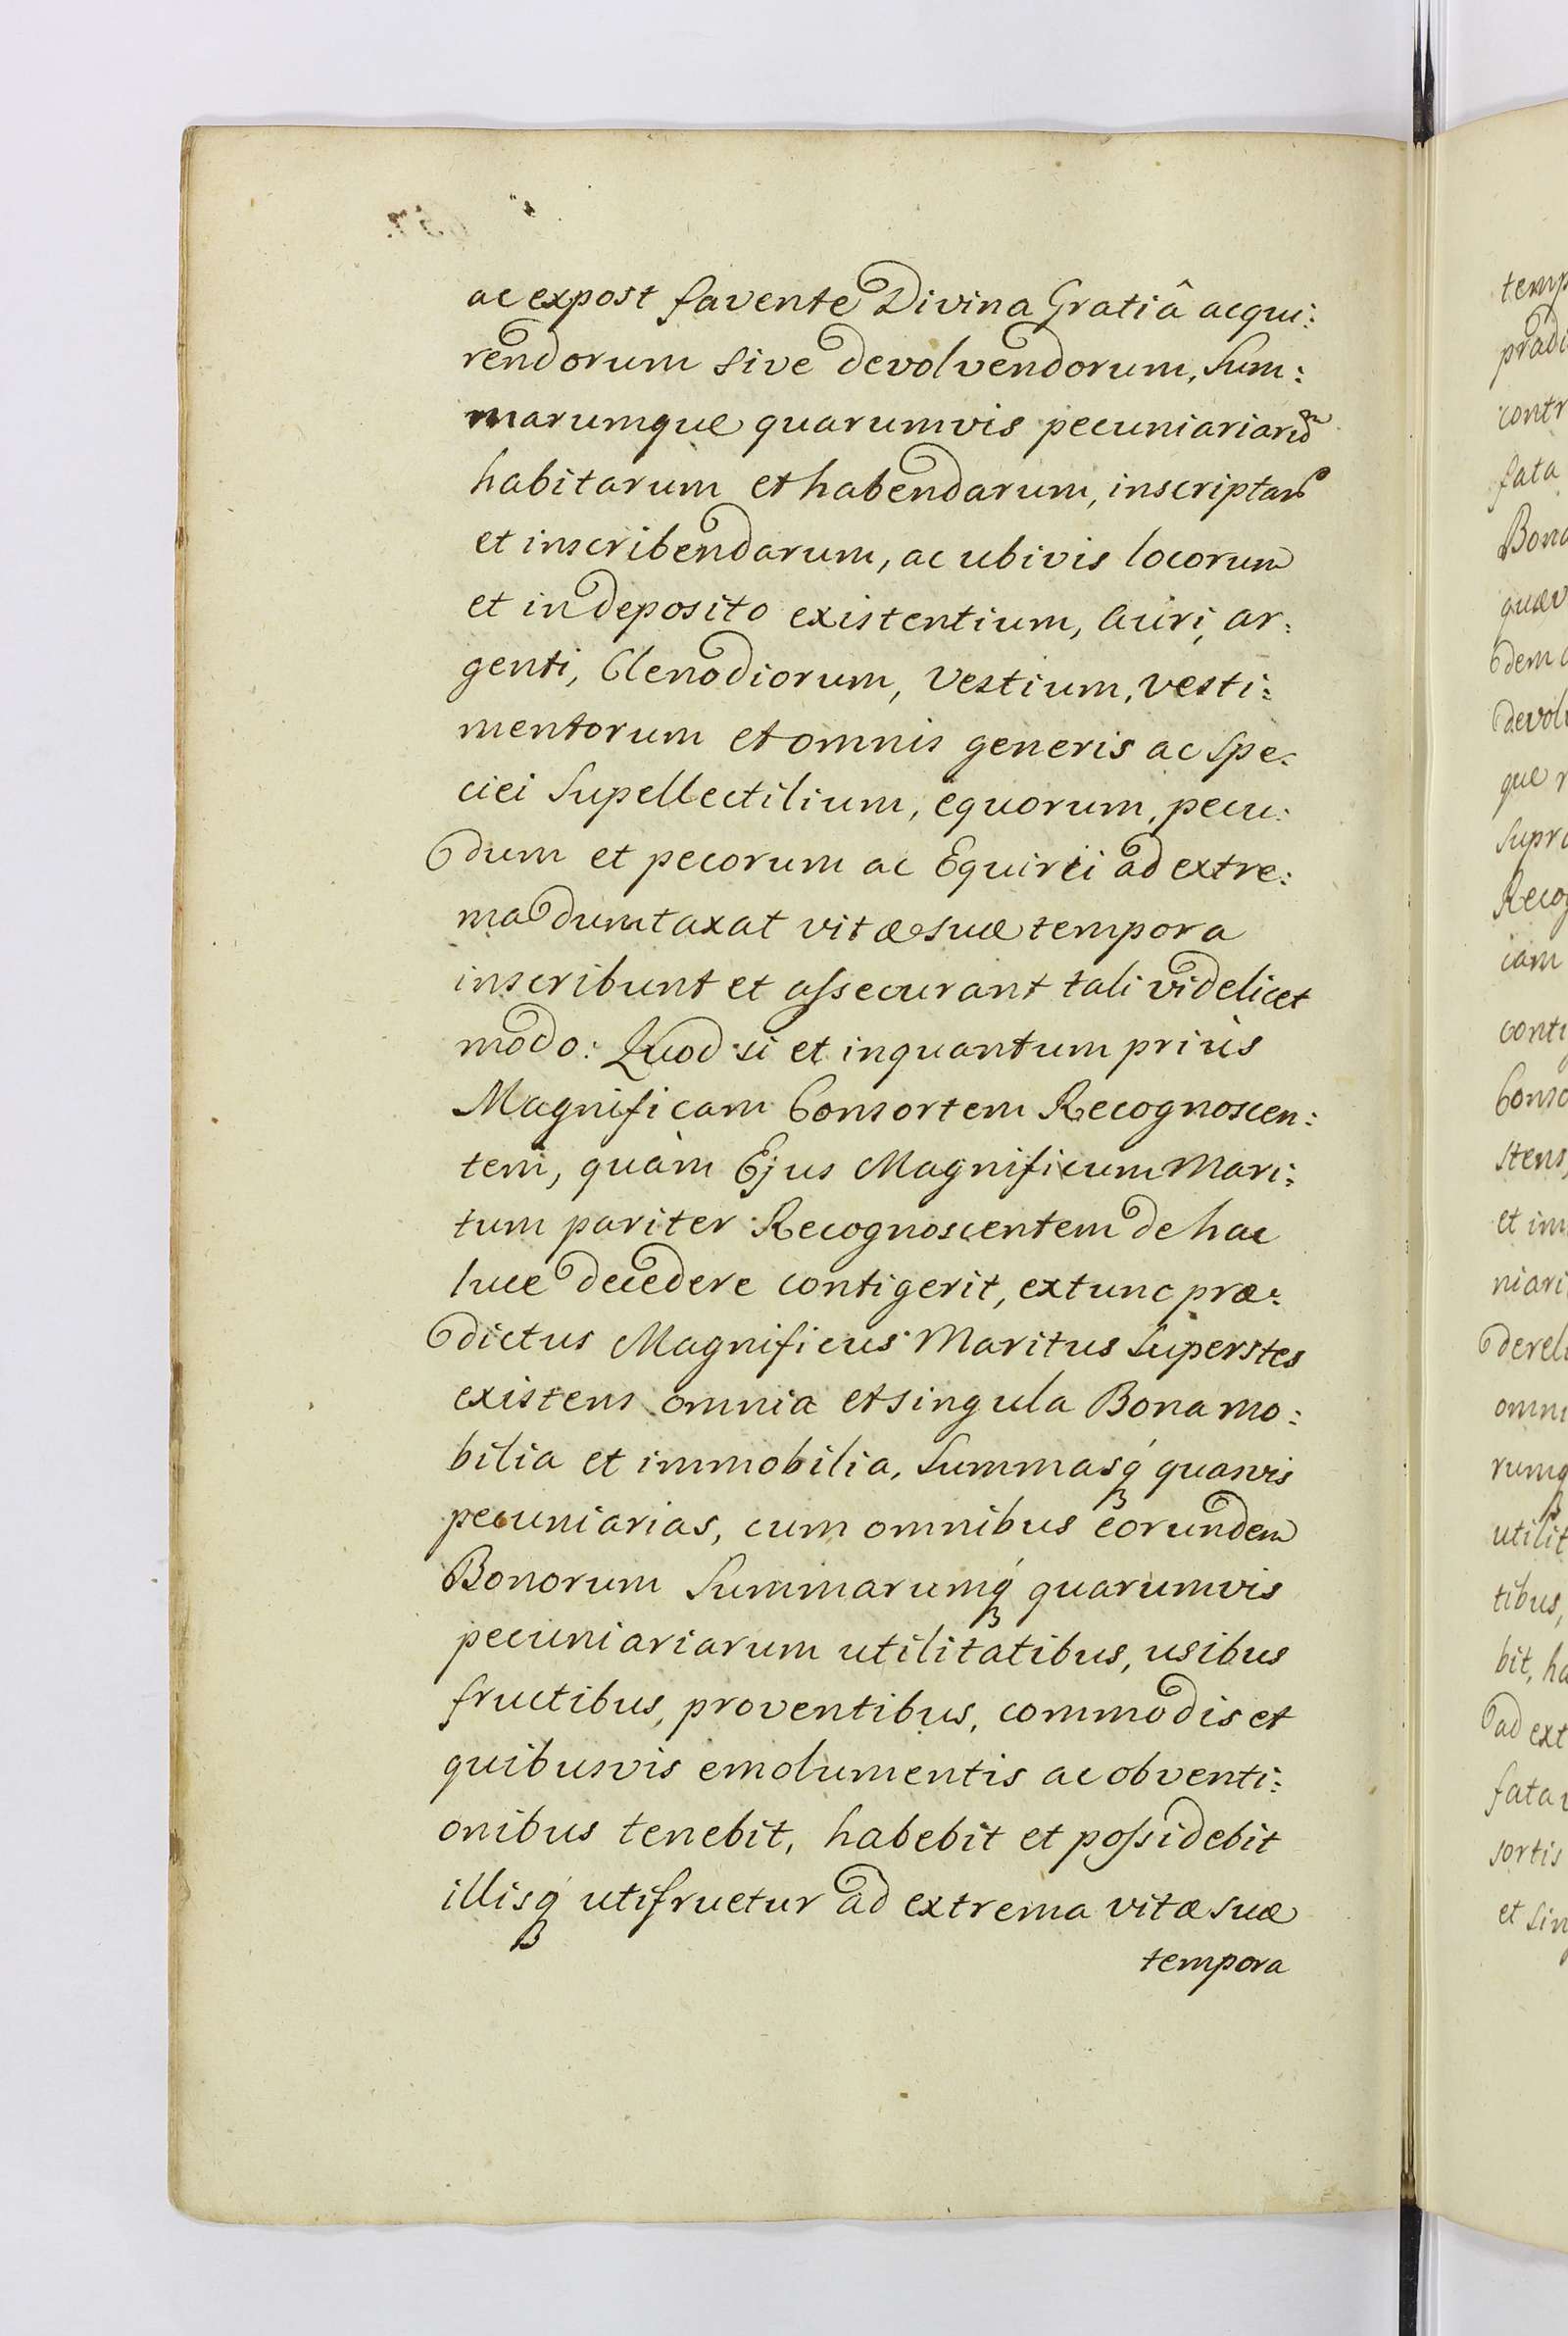 ac expost favente Divina Gratiâ acqui:
rendorum sive devolvendorum, Sum:
marumque quarumvis pecuniariarũ
habitarum et habendarum, inscriptarũ
et inscribendarum, ac ubivis locorum
et in deposito existentium, Auri, ar:
genti, Clenodiorum, Vestium, vesti:
mentorum et omnis generis ac Spe:
ciei Supellectilium, equorum, pecu:
dum et pecorum ac Equirei ad extre:
ma duntaxat vitæ suæ tempora
inscribunt et assecurant tali videlicet
modo: Quod si et inquantum priùs
Magnificam Consortem Recognoscen:
tem, quàm Ejus Magnificum Mari:
tum pariter Recognoscentem de hac
luce decedere contigerit, extunc præ:
dictus Magnificus Maritus Superstes
existens omnia et singula Bona mo:
bilia et immobilia, Summasq́ quasvis
pecuniarias, cum omnibus eorundem
Bonorum Summarumq́ quarumvis
pecuniariarum utilitatibus, usibus
fructibus, proventibus, commodis et
quibusvis emolumentis ac obventi:
onibus tenebit, habebit et possidebit
illisq́ utifruetur ad extrema vitæ suæ
tempora
temp
prædi
contr
fata
Bona
quæv
dem
devol
que
supra
Recog
cam
conti
Conso
stens,
et im
niari
dereli
omni
rumq
utilit
tibus,
bit, ha
ad ext
fata
sortis
et sin